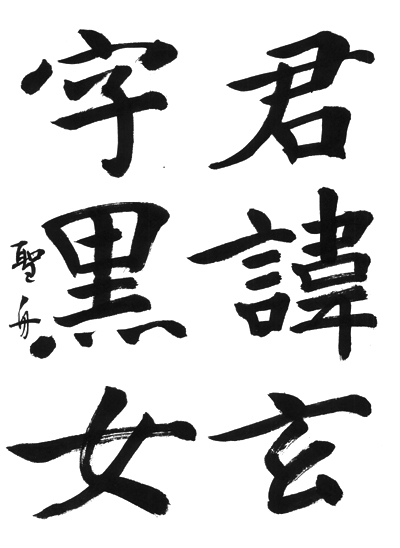 君諱玄
字黒女
聖舟